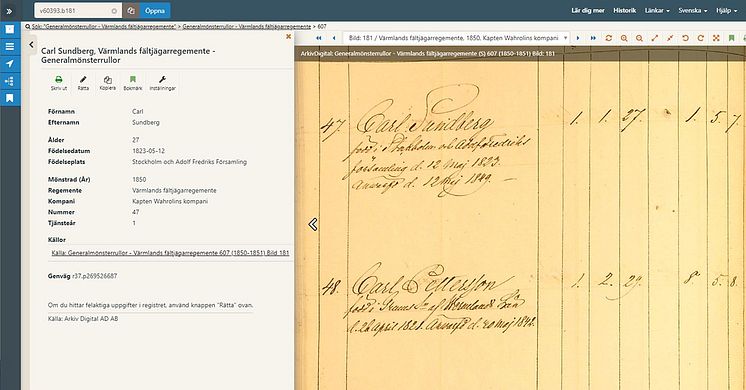 v60393.b181
Öppna
Lär dig mer Historik Länkar Svenska Hjälp
Sök: "Generalmönsterrullor - Värmlands fältjägarregemente" > Generalmönsterrullor - Värmlands fältjägarregemente > 607
Bild: 181 / Värmlands fältjägarregemente, 1850, Kapten Wahrolins kompani
ArkivDigital: Generalmönsterrullor - Värmlands fältjägarregemente (S) 607 (1850-1851) Bild: 181
Carl Sundberg, Värmlands fältjägarregemente -
Generalmönsterrullor
Skriv ut Rätta Kopiera Bokmärk Inställningar
Förnamn Carl
Efternamn Sundberg
Ålder 27
Födelsedatum 1823-05-12
Födelseplats Stockholm och Adolf Fredriks Församling
Mönstrad (År) 1850
Regemente Värmlands fältjägarregemente
Kompani Kapten Wahrolins kompani
Nummer 47
Tjänsteår 1
Källor
Källa: Generalmönsterrullor - Värmlands fältjägarregemente 607 (1850-1851) Bild 181
Genväg r37.p269526687
Om du hittar felaktiga uppgifter i registret, använd knappen "Rätta" ovan.
Källa: Arkiv Digital AD AB
47. Carl Sundberg 1. 1. 27. 1. 5. 7.
född i Stockholm och Adolf Fredriks
församling d. 12 maj 1823.
Anvärfd d. 12 maj 1849.
48. Carl Pettersson 1. 2. 29. 8. 5. 8.
född i af Wermlands Län
d. 26 april 1821. Anvärfd d. 20 maj 1842.